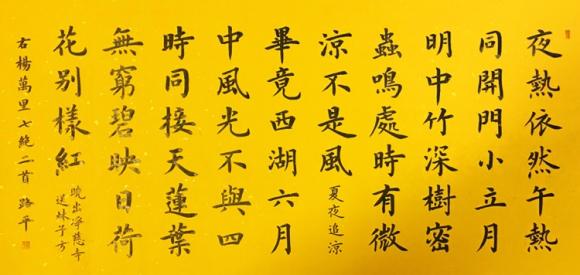 夜熱依然午熱
同開門小立月
明中竹深樹密
蟲鳴處時有微
涼不是風 夏夜追涼
畢竟西湖六月
中風光不與四
時同接天蓮葉
無窮碧映日荷
花别樣紅
曉出淨慈寺
送林子方
右楊萬里七絶二首 路平